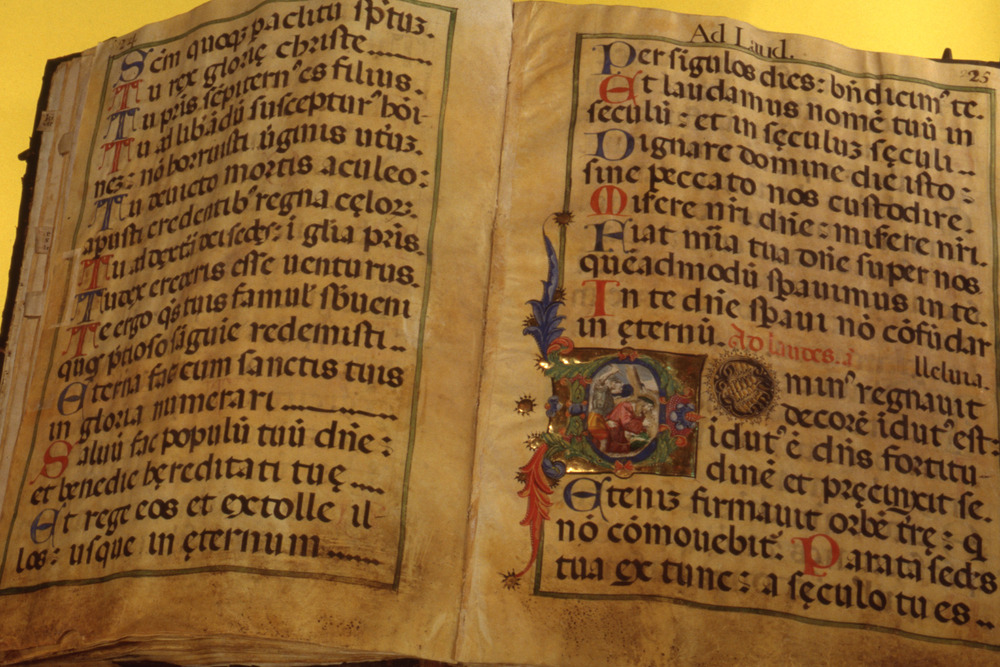 24
Scm̄ quoqz paclitū sp̄tuz.
Tu rex glorię christe
Tu pr̄is sēpitern⁹ es filius.
Tu ad libādū susceptur⁹ hoī-
nez: nō horruisti ūginis utūz.
Tu deuicto mortis aculeo:
apuisti credentib⁹ regna cęloꝝ.
Tu ad dextā dei sedes: ī glīa pr̄is.
Iudex crederis esse uenturus.
Te ergo qs̄ tuis famul' sbueni
quos p̄tioso sāguīe redemisti
Eterna fac cum sanctis tuis
in gloria numerari
Saluū fac populū tuū dn̄e:
et benedic hęreditati tuę
Et rege eos et extolle il-
los: usque in ęternum
Ad Laud.
25
Per sigulos dies: bn̄dicim⁹ te.
Et laudamus nomē tuū in
seculū: et in sęculuz sęculi
Dignare domine die isto:
sine peccato nos custodire.
Misere nr̄i dn̄e: misere nr̄i.
Fiat mīa tua dn̄e super nos
quēadmodū sp̄auimus in te.
In te dn̄e sp̄aui nō cōfūdar
in ęternū. Ad laudes. a
lleluia.
Dominus regnauit
decorē īdut⁹ est:
īdut⁹ ē dn̄s fortitu-
dinē et pręcinxit se.
Etenīz firmauit orbē tr̄ę: q
nō cōmouebit̄. Parata sedes
tua ex tunc: a sęculo tu es